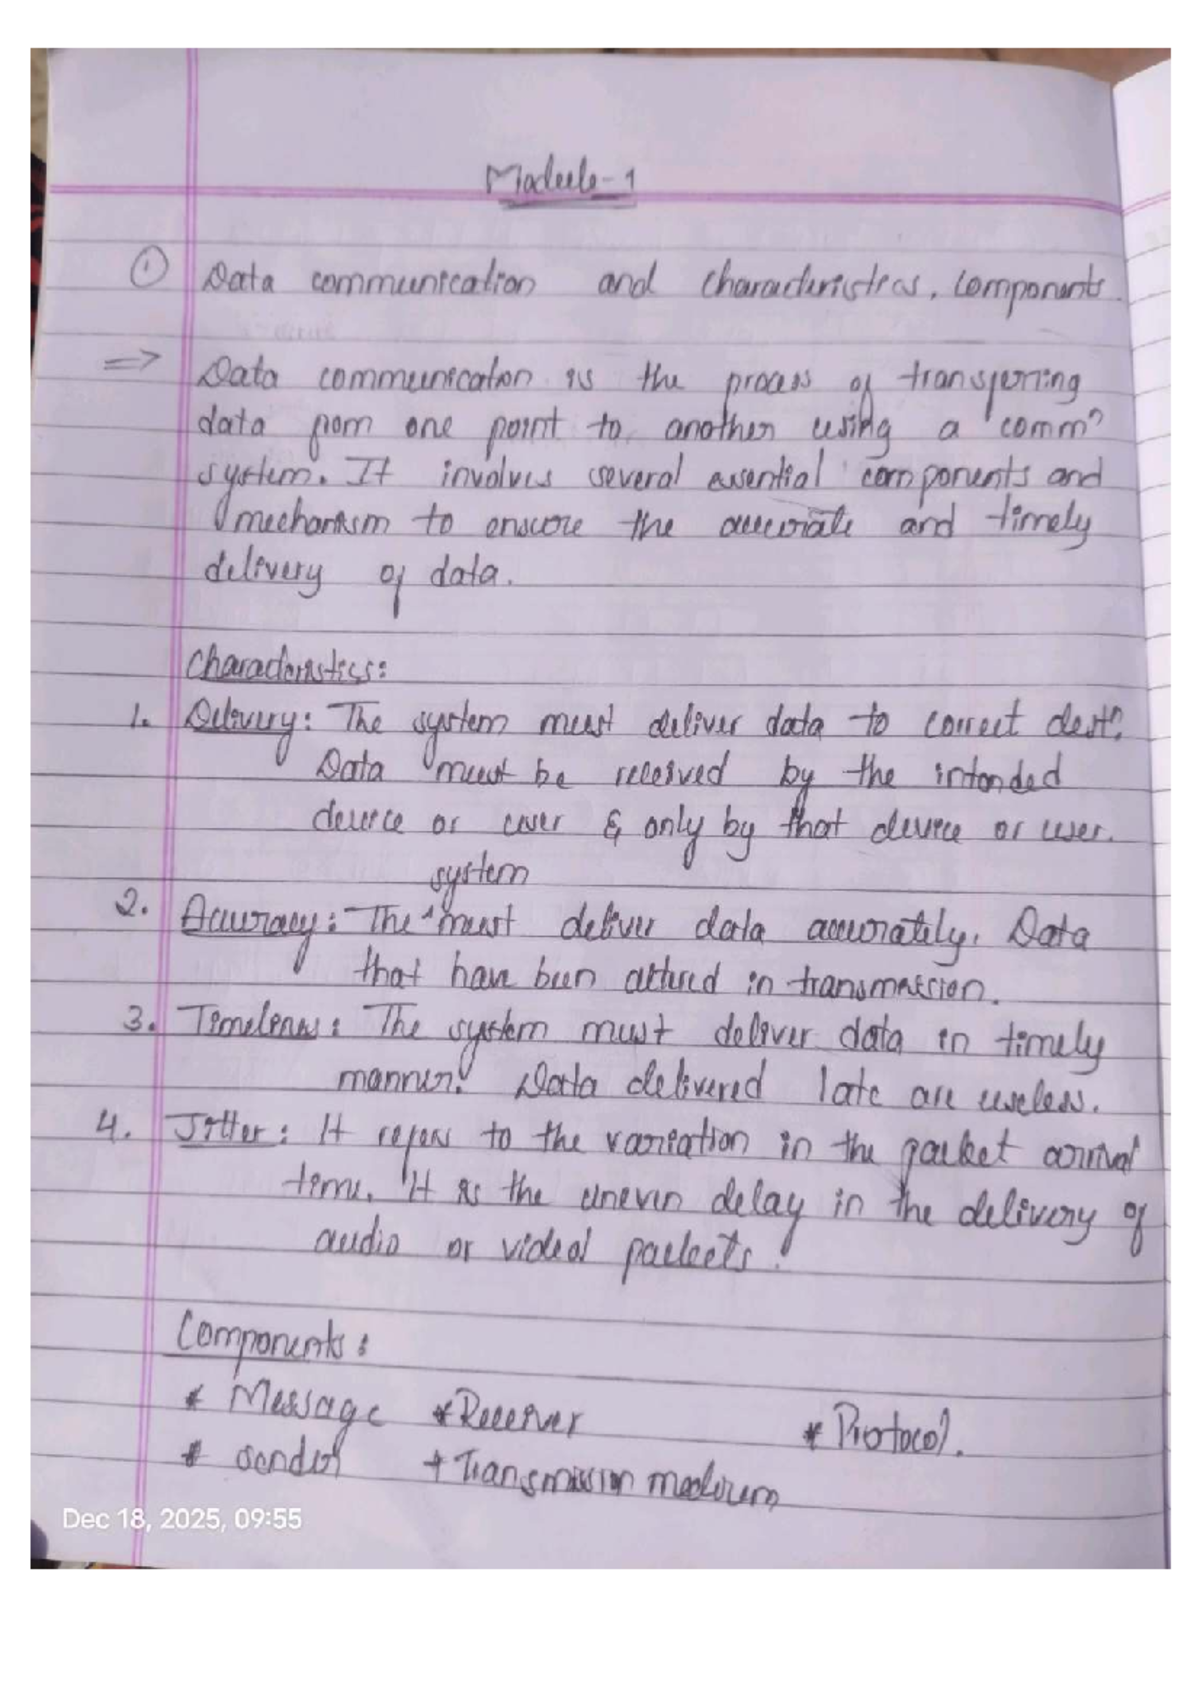 Module-1
① Data communication and characteristics, components.
⇒ Data communication is the process of transferring
data from one point to another using a commⁿ
system. It involves several essential components and
mechanism to ensure the accurate and timely
delivery of data.
Characteristics:
1. Delivery: The system must deliver data to correct destⁿ.
Data must be received by the intended
device or user & only by that device or user.
system
2. Accuracy: The ^ must deliver data accurately. Data
that have been altered in transmission.
3. Timeliness: The system must deliver data in timely
manner. Data delivered late are useless.
4. Jitter: It refers to the variation in the packet arrival
time. It is the uneven delay in the delivery of
audio or video packets.
Components:
* Message * Receiver * Protocol.
* Sender + Transmission medium
Dec 18, 2025, 09:55